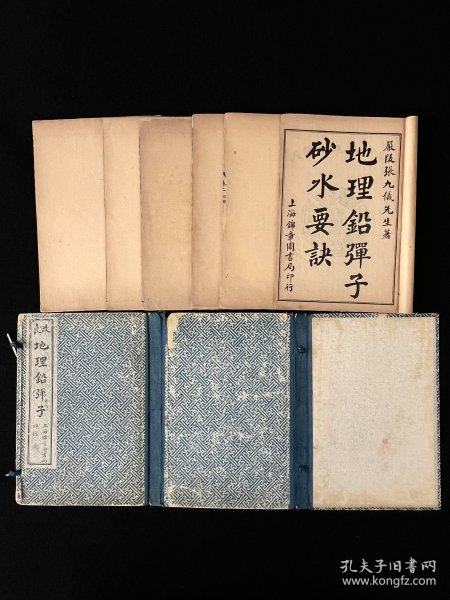 嚴陵張九儀先生著
地理鉛彈子
砂水要訣
上海錦章圖書局印行
地理鉛彈子
孔夫子旧书网
www.kongfz.com